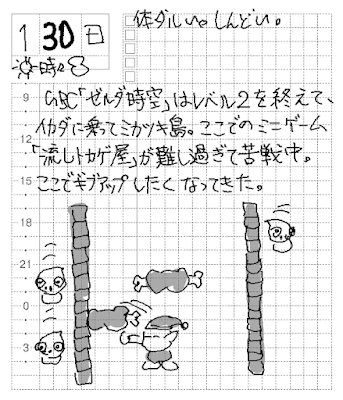 1 30 日
時々
体ダルいo しんどい。
GBC「ゼルダ時空」はレベル2を終えて、
イカダに乗ってミカヅキ島。ここでのミニゲーム
「流しトカゲ屋」が難し過ぎて苦戦中。
ここでギブアップしたくなってきた。
9
12
15
18
21
0
3